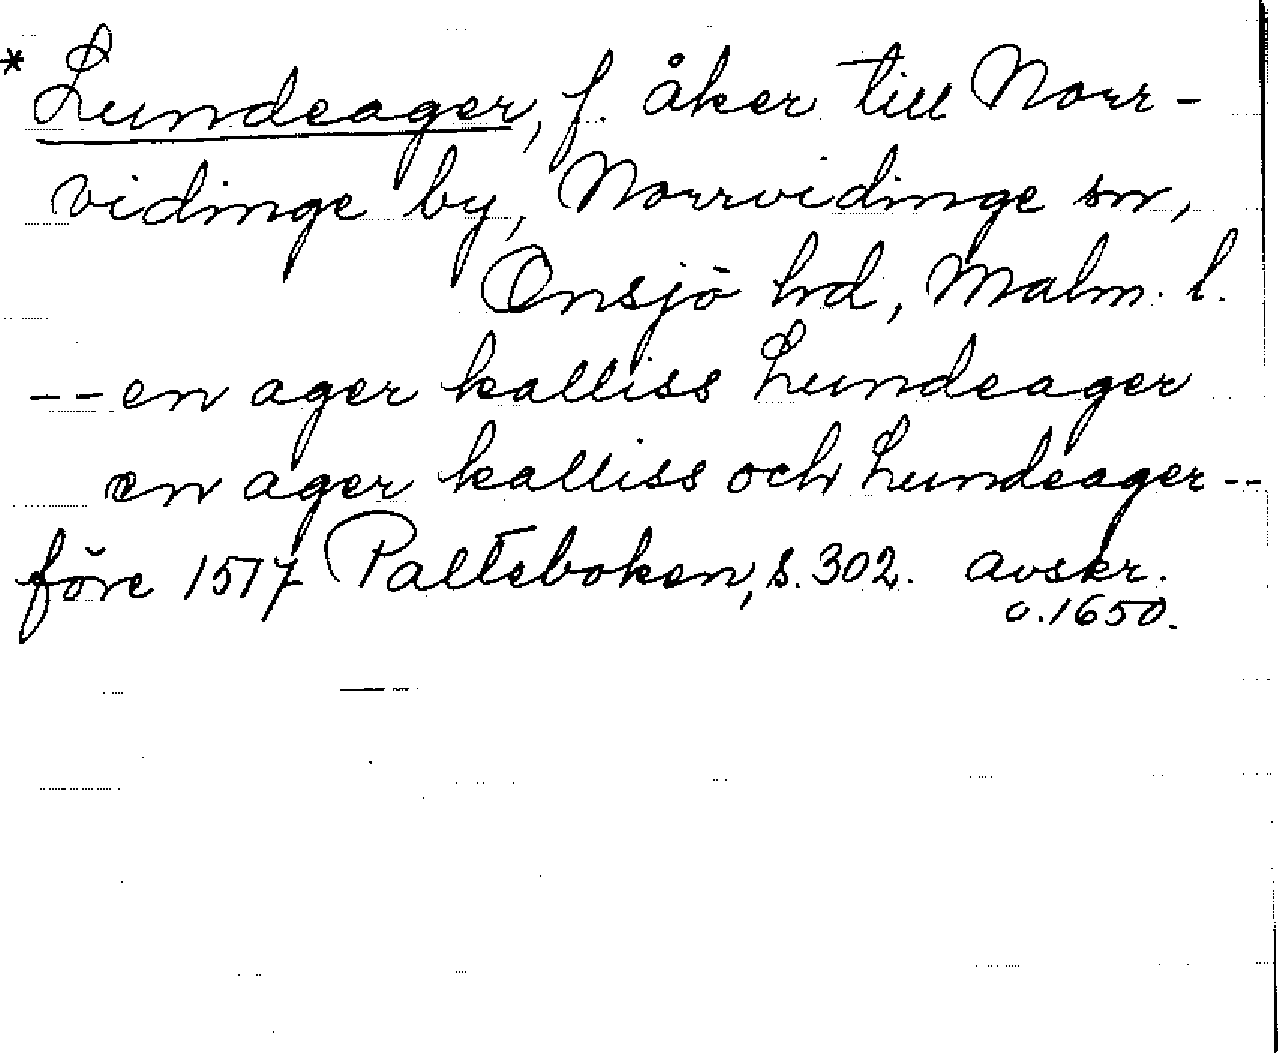 * Lundeager, f. åker till Norr-
vidinge by, Norrvidinge sn,
Onsjö hd, Malm. l.
-- en ager kalliss Lundeager
en ager kalliss och Lundeager --
före 1517 Palteboken, s. 302. avskr.
c. 1650.